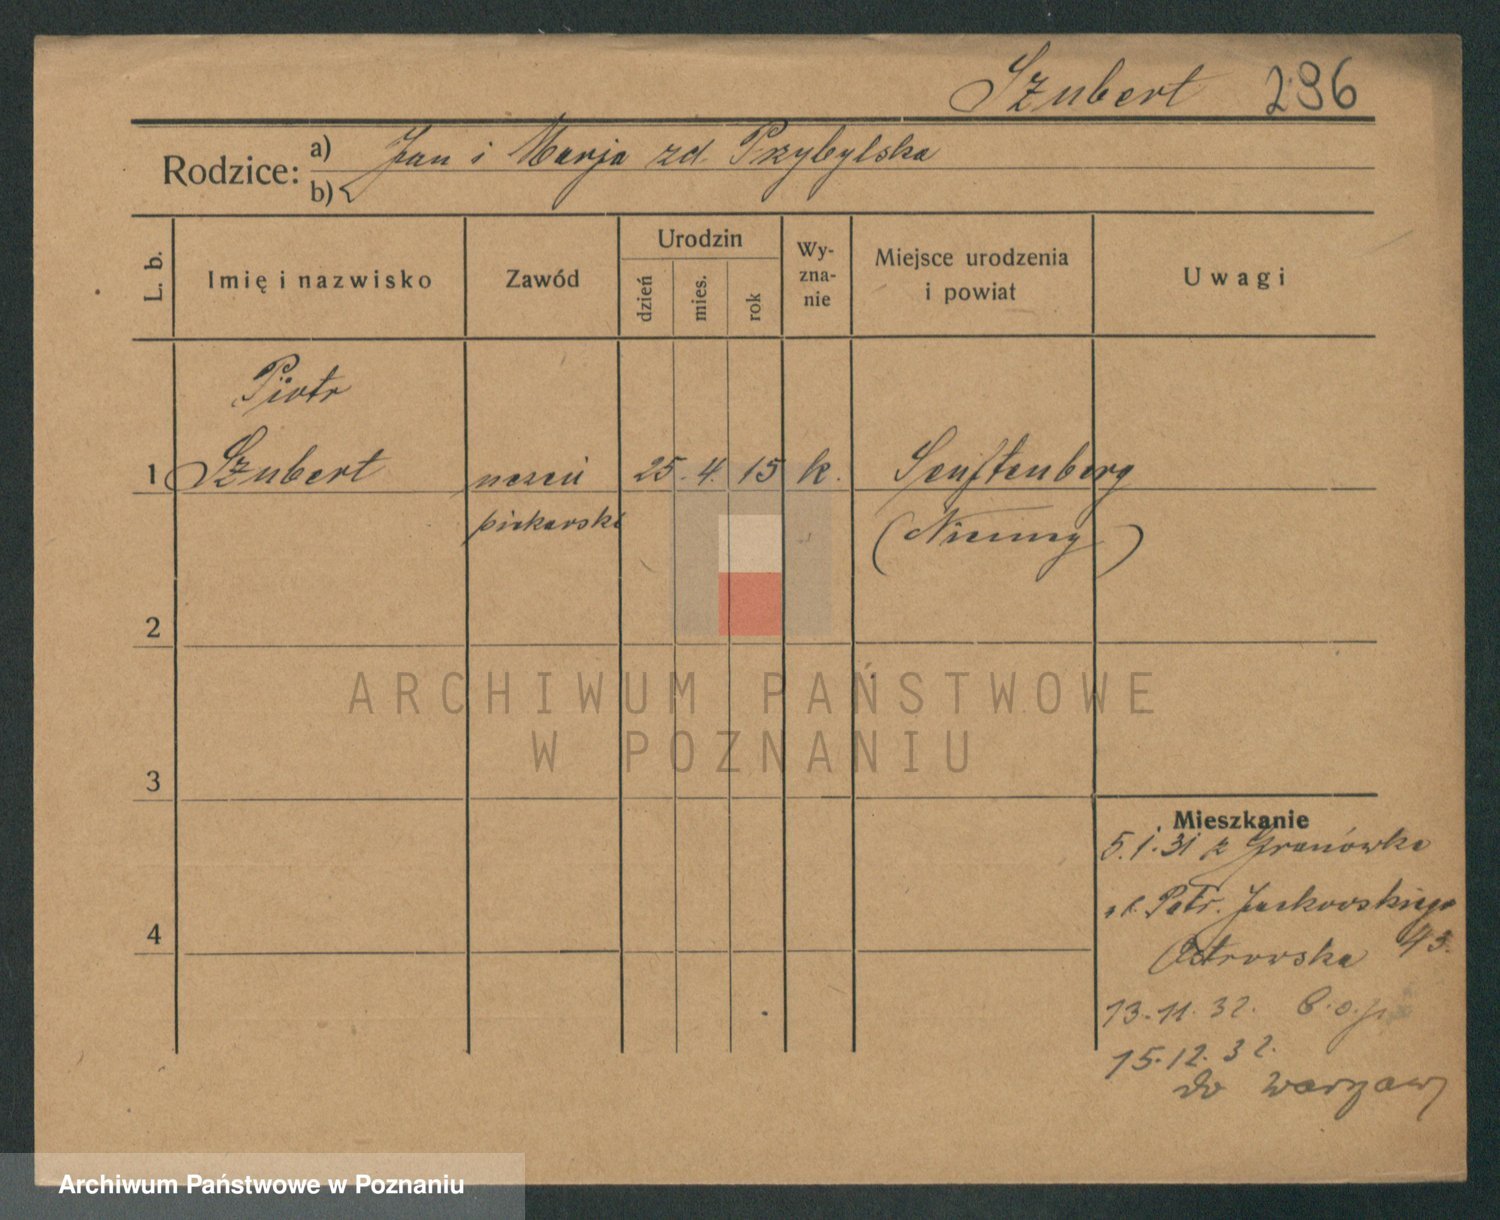 Szubert 296
Rodzice: a) Jan i Marja zd. Przybylska
b)
L. b.
Imię i nazwisko
Zawód
Urodzin
dzień
mies.
rok
Wy-
zna-
nie
Miejsce urodzenia
i powiat
Uwagi
Piotr
1 Szubert uczeń 25. 4. 15 k. Senftenberg
piekarski (Niemcy)
2
ARCHIWUM PAŃSTWOWE
W POZNANIU
3
Mieszkanie
5.1.31 z Granówka
Patr. Jackowskiego
4
Ostrowska 45.
13.11.32.
15.12.32.
do Warszawy
Archiwum Państwowe w Poznaniu